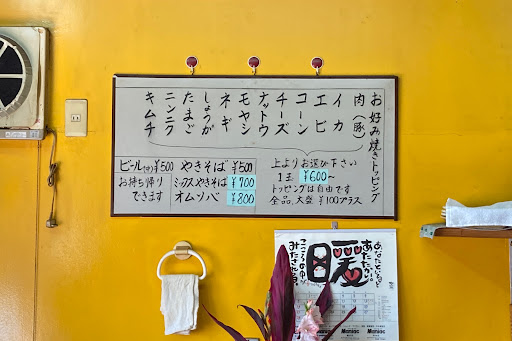 お好み焼きトッピング
肉(豚)
イカ
エビ
コーン
チーズ
ナットウ
モヤシ
ネギ
しょうが
たまご
ニンニク
キムチ
上よりお選び下さい
1玉 ¥600〜
トッピングは自由です
全品、大盛 ¥100プラス
やきそば ¥500
ミックスやきそば ¥700
オムソバ ¥800
ビール(中)¥500
お持ち帰り
できます
あたたかい
暖
Maniac
Maniac
Maniac